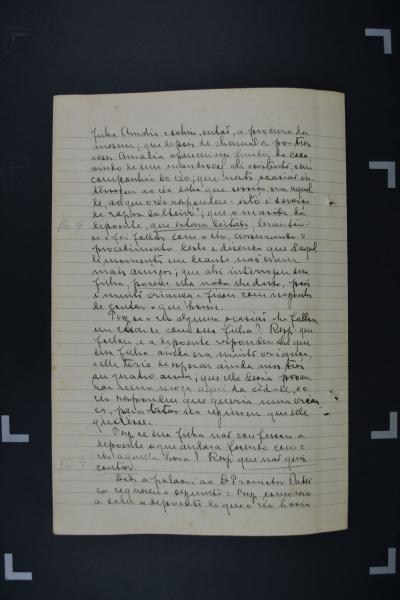 filha Amalia e sahiu, então, á procura da
mesma; que depois de chamal-a por tres
vezes Amalia appareceu nos fundos da casa,
vindo de um mandiocal ali existente, em
companhia do réo; que nesta occasião in-
terrogou ao réo sobre que serviço era aquel-
le, ao que o réo respondeu: isto é serviço
de rapaz solteiro; que o marido da
depoente, que estava deitado, levantou-
se e foi fallar com o réo, censurando o
procedimento deste e dizendo que daquel-
le momento em deante não eram
mais amigos; que ahi interrogou sua
filha, porém ella nada lhe disse, pois
é muito criança e ficou com vergonha
de contar o que houve.
Perg. se o réo alguma occasião lhe fallou
em casar-se com sua filha? Resp. que
fallou, e a depoente respondeu-lhe que
sua filha ainda era muito criança,
e elle teria de esperar ainda uns tres
ou quatro annos; que elle devia procu-
rar uma moça aqui da cidade, e o
réo respondeu que queria uma crian-
ça, para tratar seu regimen que elle
quizesse.
Perg. se sua filha não confessou a
depoente o que andava fazendo com o
réo áquella hora? Resp. que não quiz
contar.
Dada a palavra ao Dr. Promotor Publi-
co requereu o seguinte: Perg. como veio
a saber a depoente do que o réo havia